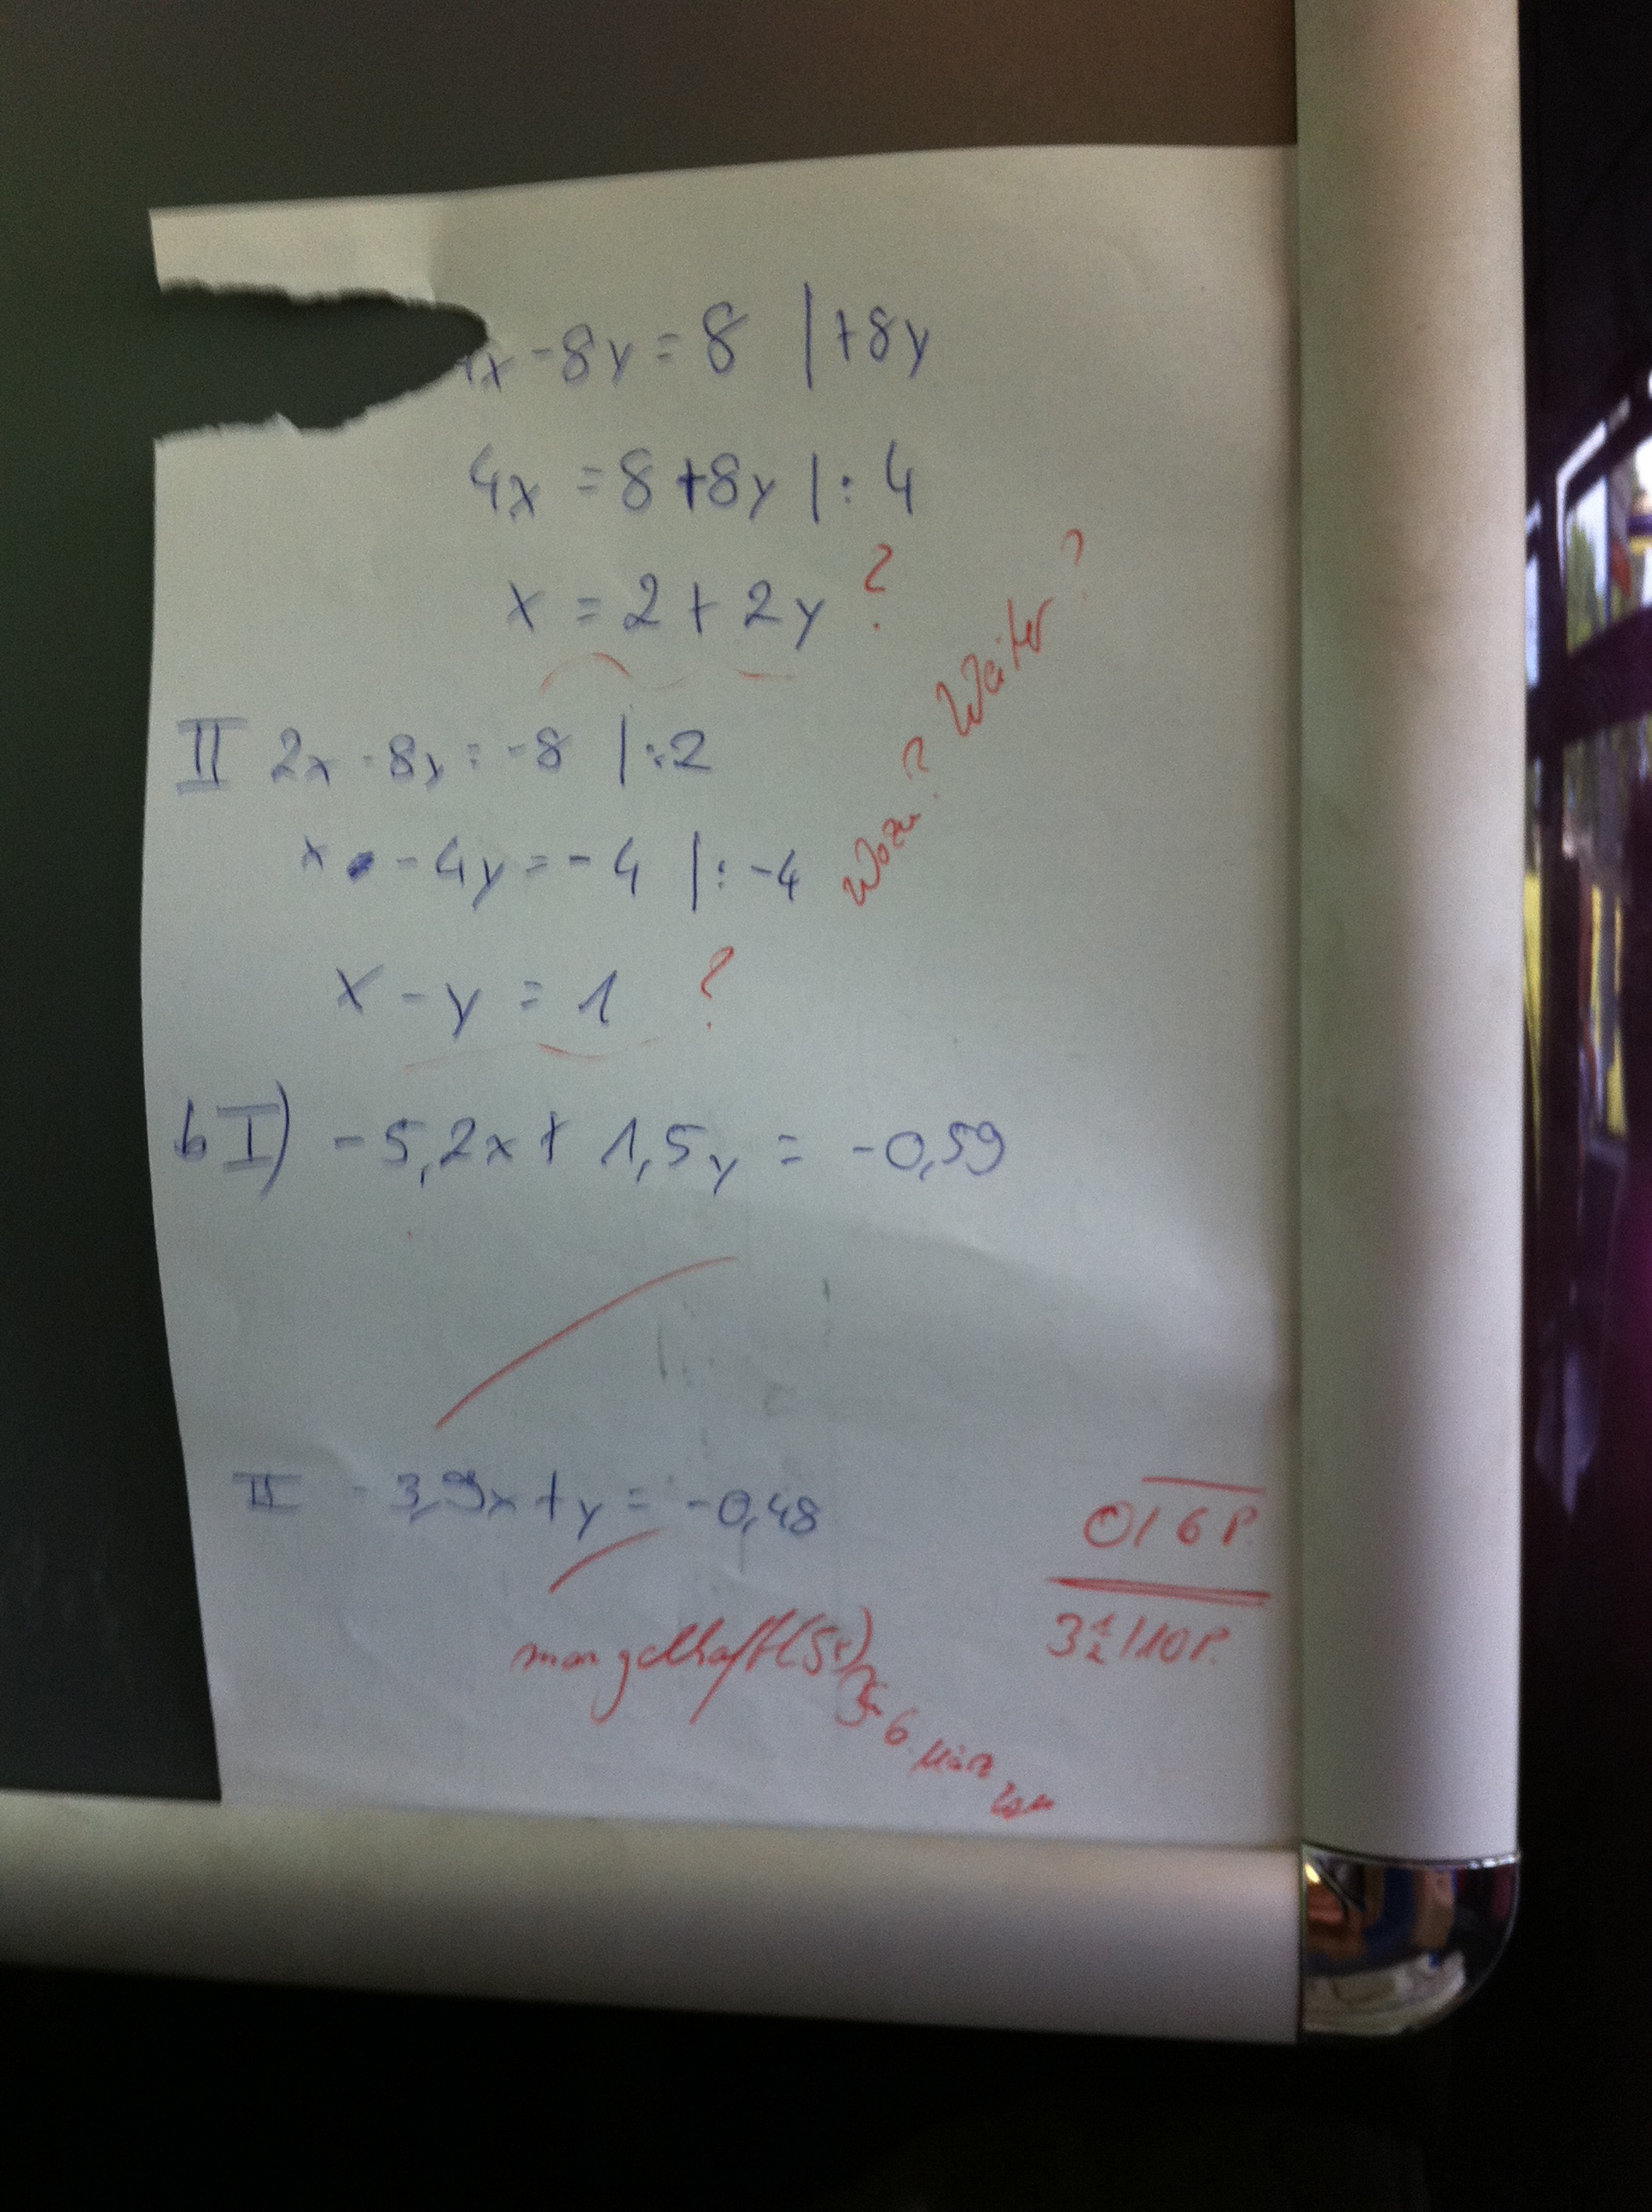 4x - 8y = 8 | +8y
4x = 8 + 8y | : 4
x = 2 + 2y ?
Wozu? Weiter?
II 2x - 8y = -8 | :2
x - 4y = -4 | : -4
x - y = 1 ?
b I) -5,2x + 1,5y = -0,59
II -3,9x + y = -0,48
0/6 P.
3 1/2 /10 P.
mangelhaft (5+)
6. März